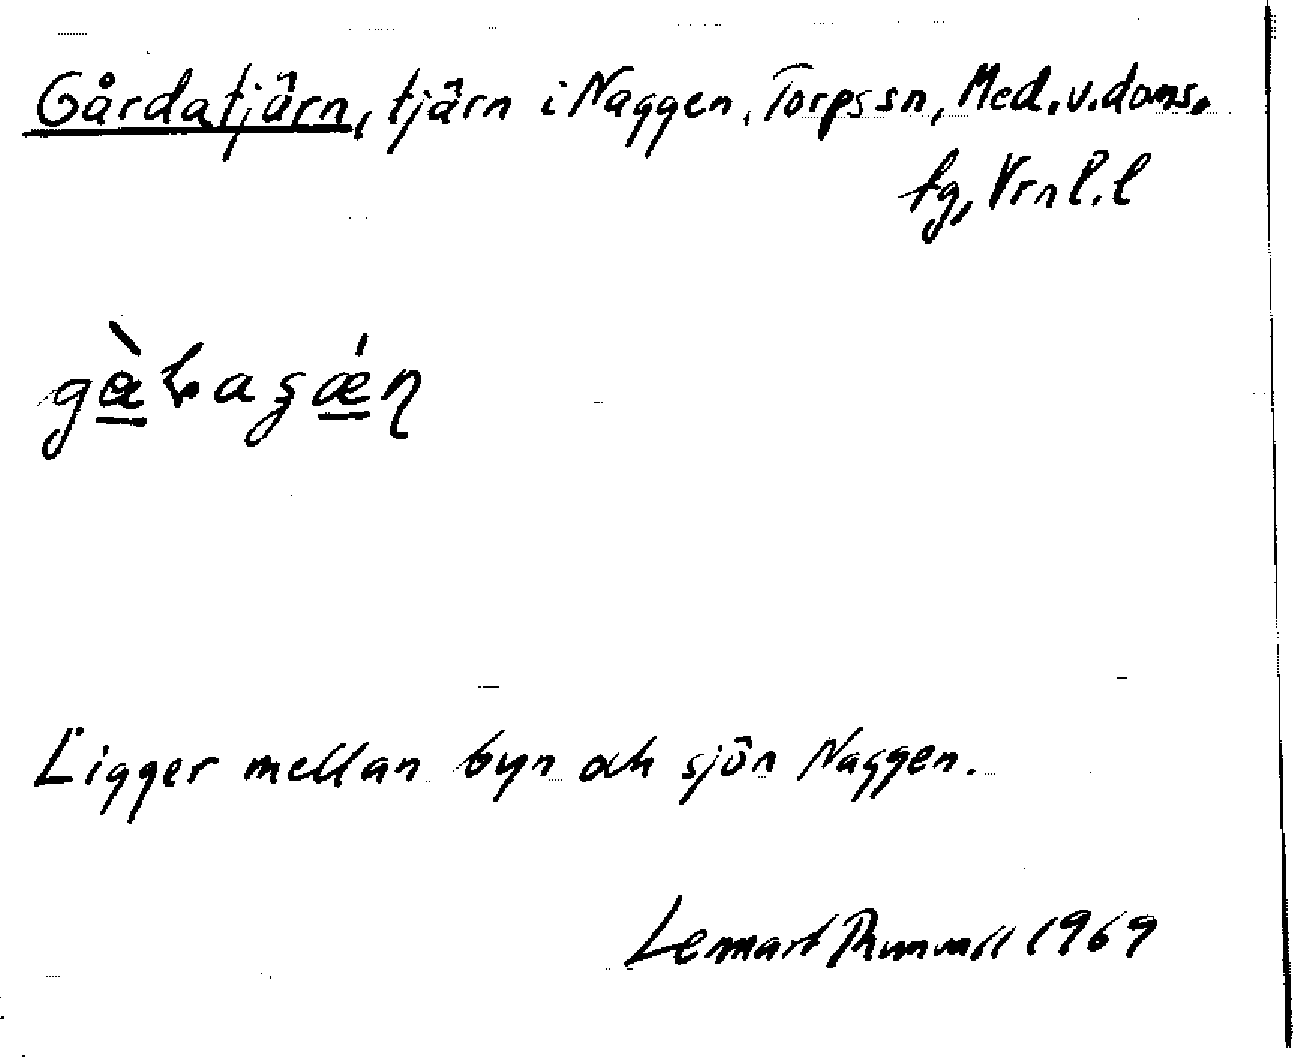 Gårdatjärn, tjärn i Naggen, Torps sn, Med.v.doms.
tg, Vrnl.l
Ligger mellan byn och sjön Naggen.
Lennart 1969